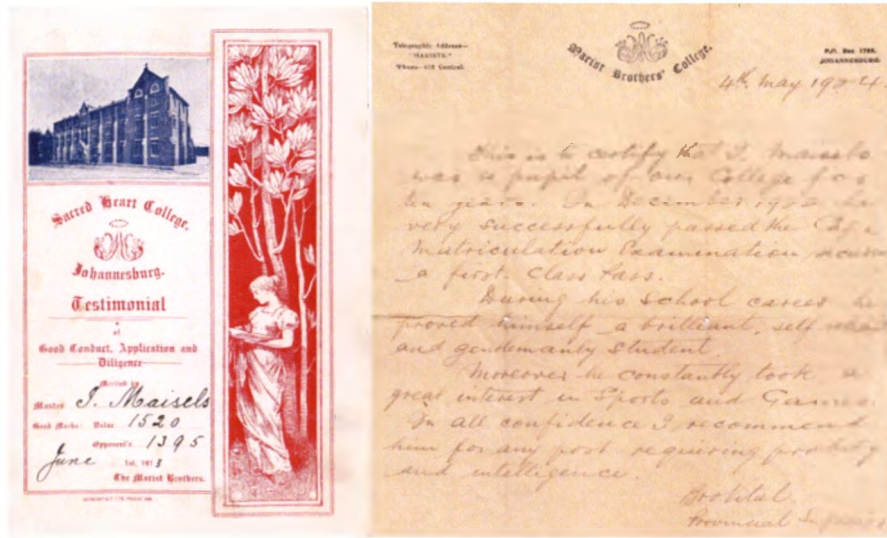 Sacred Heart College,
Johannesburg.
Testimonial
of
Good Conduct, Application and
Diligence
Merited by
Master I. Maisels
Good Marks: Value 1520
Opponent's 1395
June 1st, 1913
The Marist Brothers.
Telegraphic Address—
"MARISTS."
Phone— Central.
Marist Brothers' College.
P.O. Box
JOHANNESBURG.
4th May 1924.
This is to certify that I. Maisels
was a pupil of our College for
ten years. In December
very successfully passed the
Matriculation Examination
a first Class Pass.
During his School career he
proved himself a brilliant, self
and gentlemanly Student.
Moreover he constantly took a
great interest in Sports and Games.
In all confidence I recommend
him for any post requiring probity
and intelligence.
Provincial